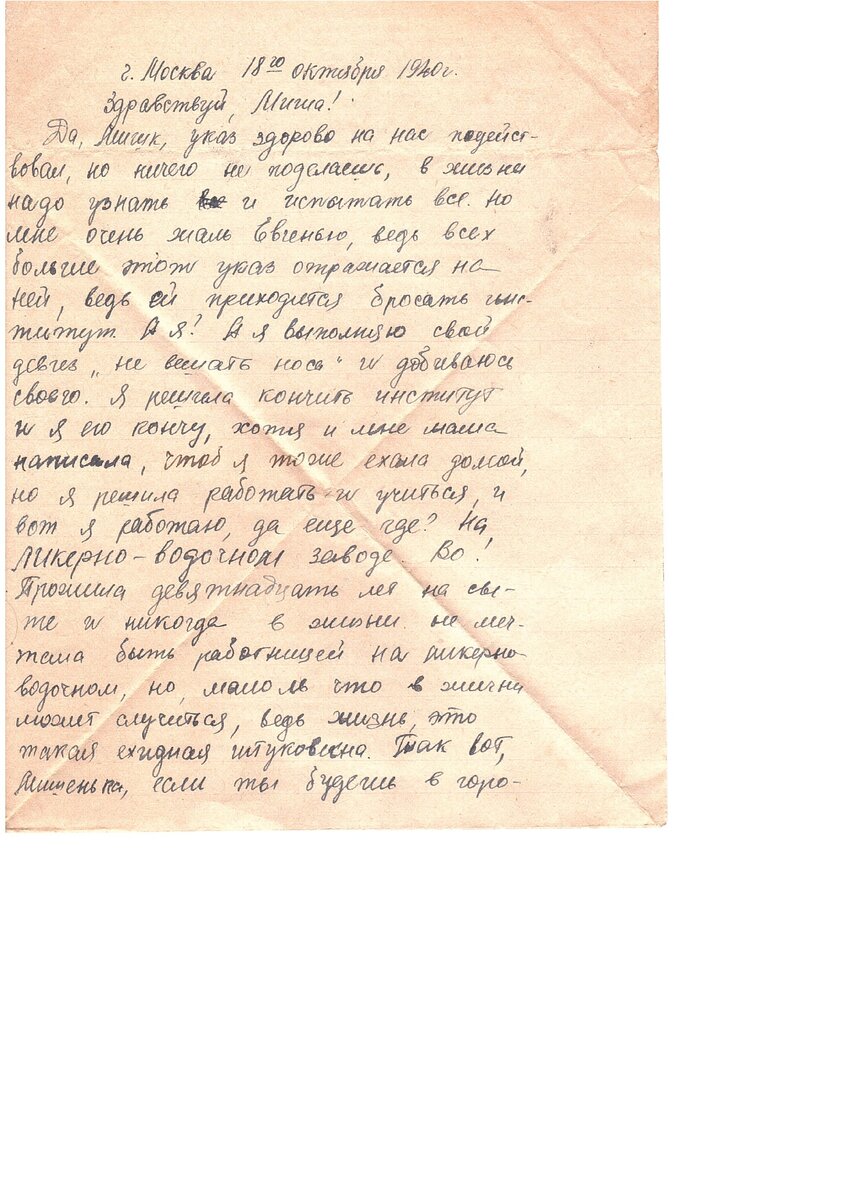 г. Москва 18го октября 1940г.
Здравствуй, Миша!
Да, Мишук, указ здорово на нас подейст-
вовал, но ничего не поделаешь, в жизни
надо узнать и испытать все. Но
мне очень жаль Евгенью, ведь всех
больше этот указ отражается на
ней, ведь ей приходится бросать инс-
титут. А я? А я выполняю свой
девиз „не вешать носа“ и добиваюсь
своего. Я решила кончить институт
и я его кончу, хотя и мне мама
написала, чтоб я тоже ехала домой,
но я решила работать и учиться, и
вот я работаю, да еще где? На
ликерно-водочном заводе. Во!
Прожила девятнадцать лет на све-
те и никогда в жизни не меч-
тала быть работницей на ликерно-
водочном, но, мало ль что в жизни
может случиться, ведь жизнь, это
такая ехидная штуковина. Так вот,
Мишенька, если ты будешь в горо-